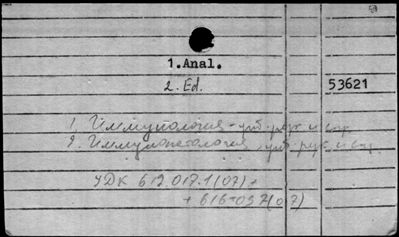 1.Anal.
2. Ed.
53621
1. Иммунология - учб. рук. и спр.
2. Иммунопатология, учб. рук. и спр.
УДК 612.017.1(07) +
+ 616-097(07)